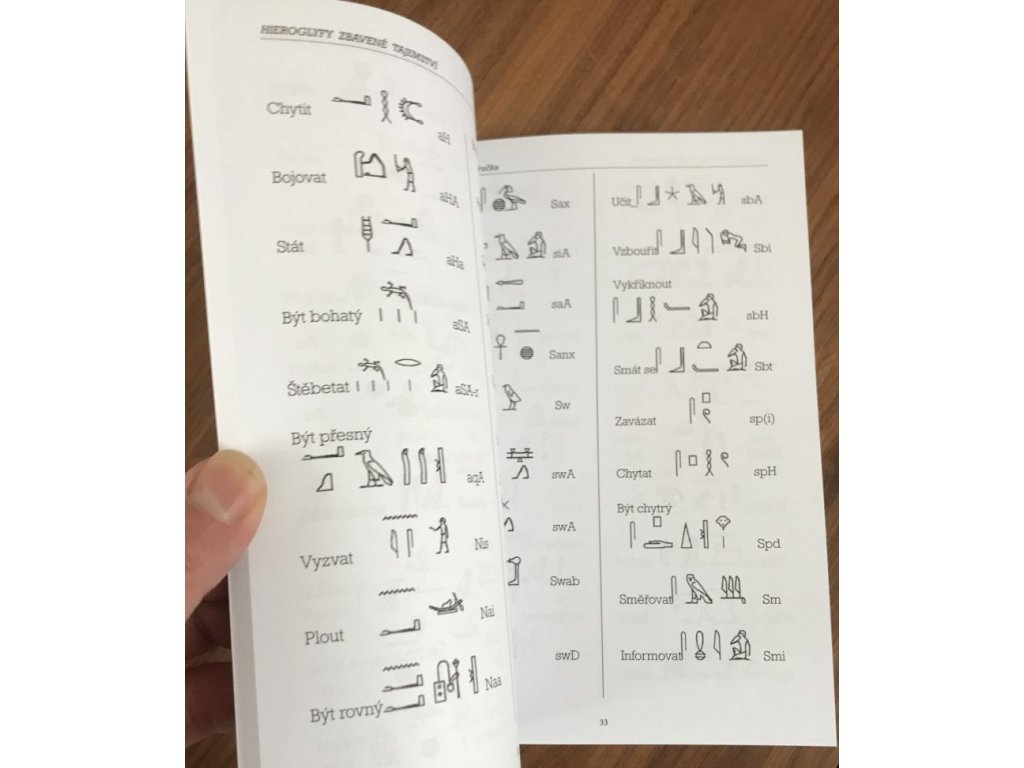 HIEROGLYFY ZBAVENÉ TAJEMSTVÍ
Chytit aH
Bojovat aHA
Stát aHa
Být bohatý aSA
Štěbetat aSA-r
Být přesný
aqA
Vyzvat Nis
Plout Nai
Být rovný Naa
Sax
siA
saA
Sanx
Sw
swA
swA
Swab
swD
Učit sbA
Vzbouřit Sbi
Vykřiknout
sbH
Smát se Sbt
Zavázat sp(i)
Chytat spH
Být chytrý
Spd
Směřovat Sm
Informovat Smi
33